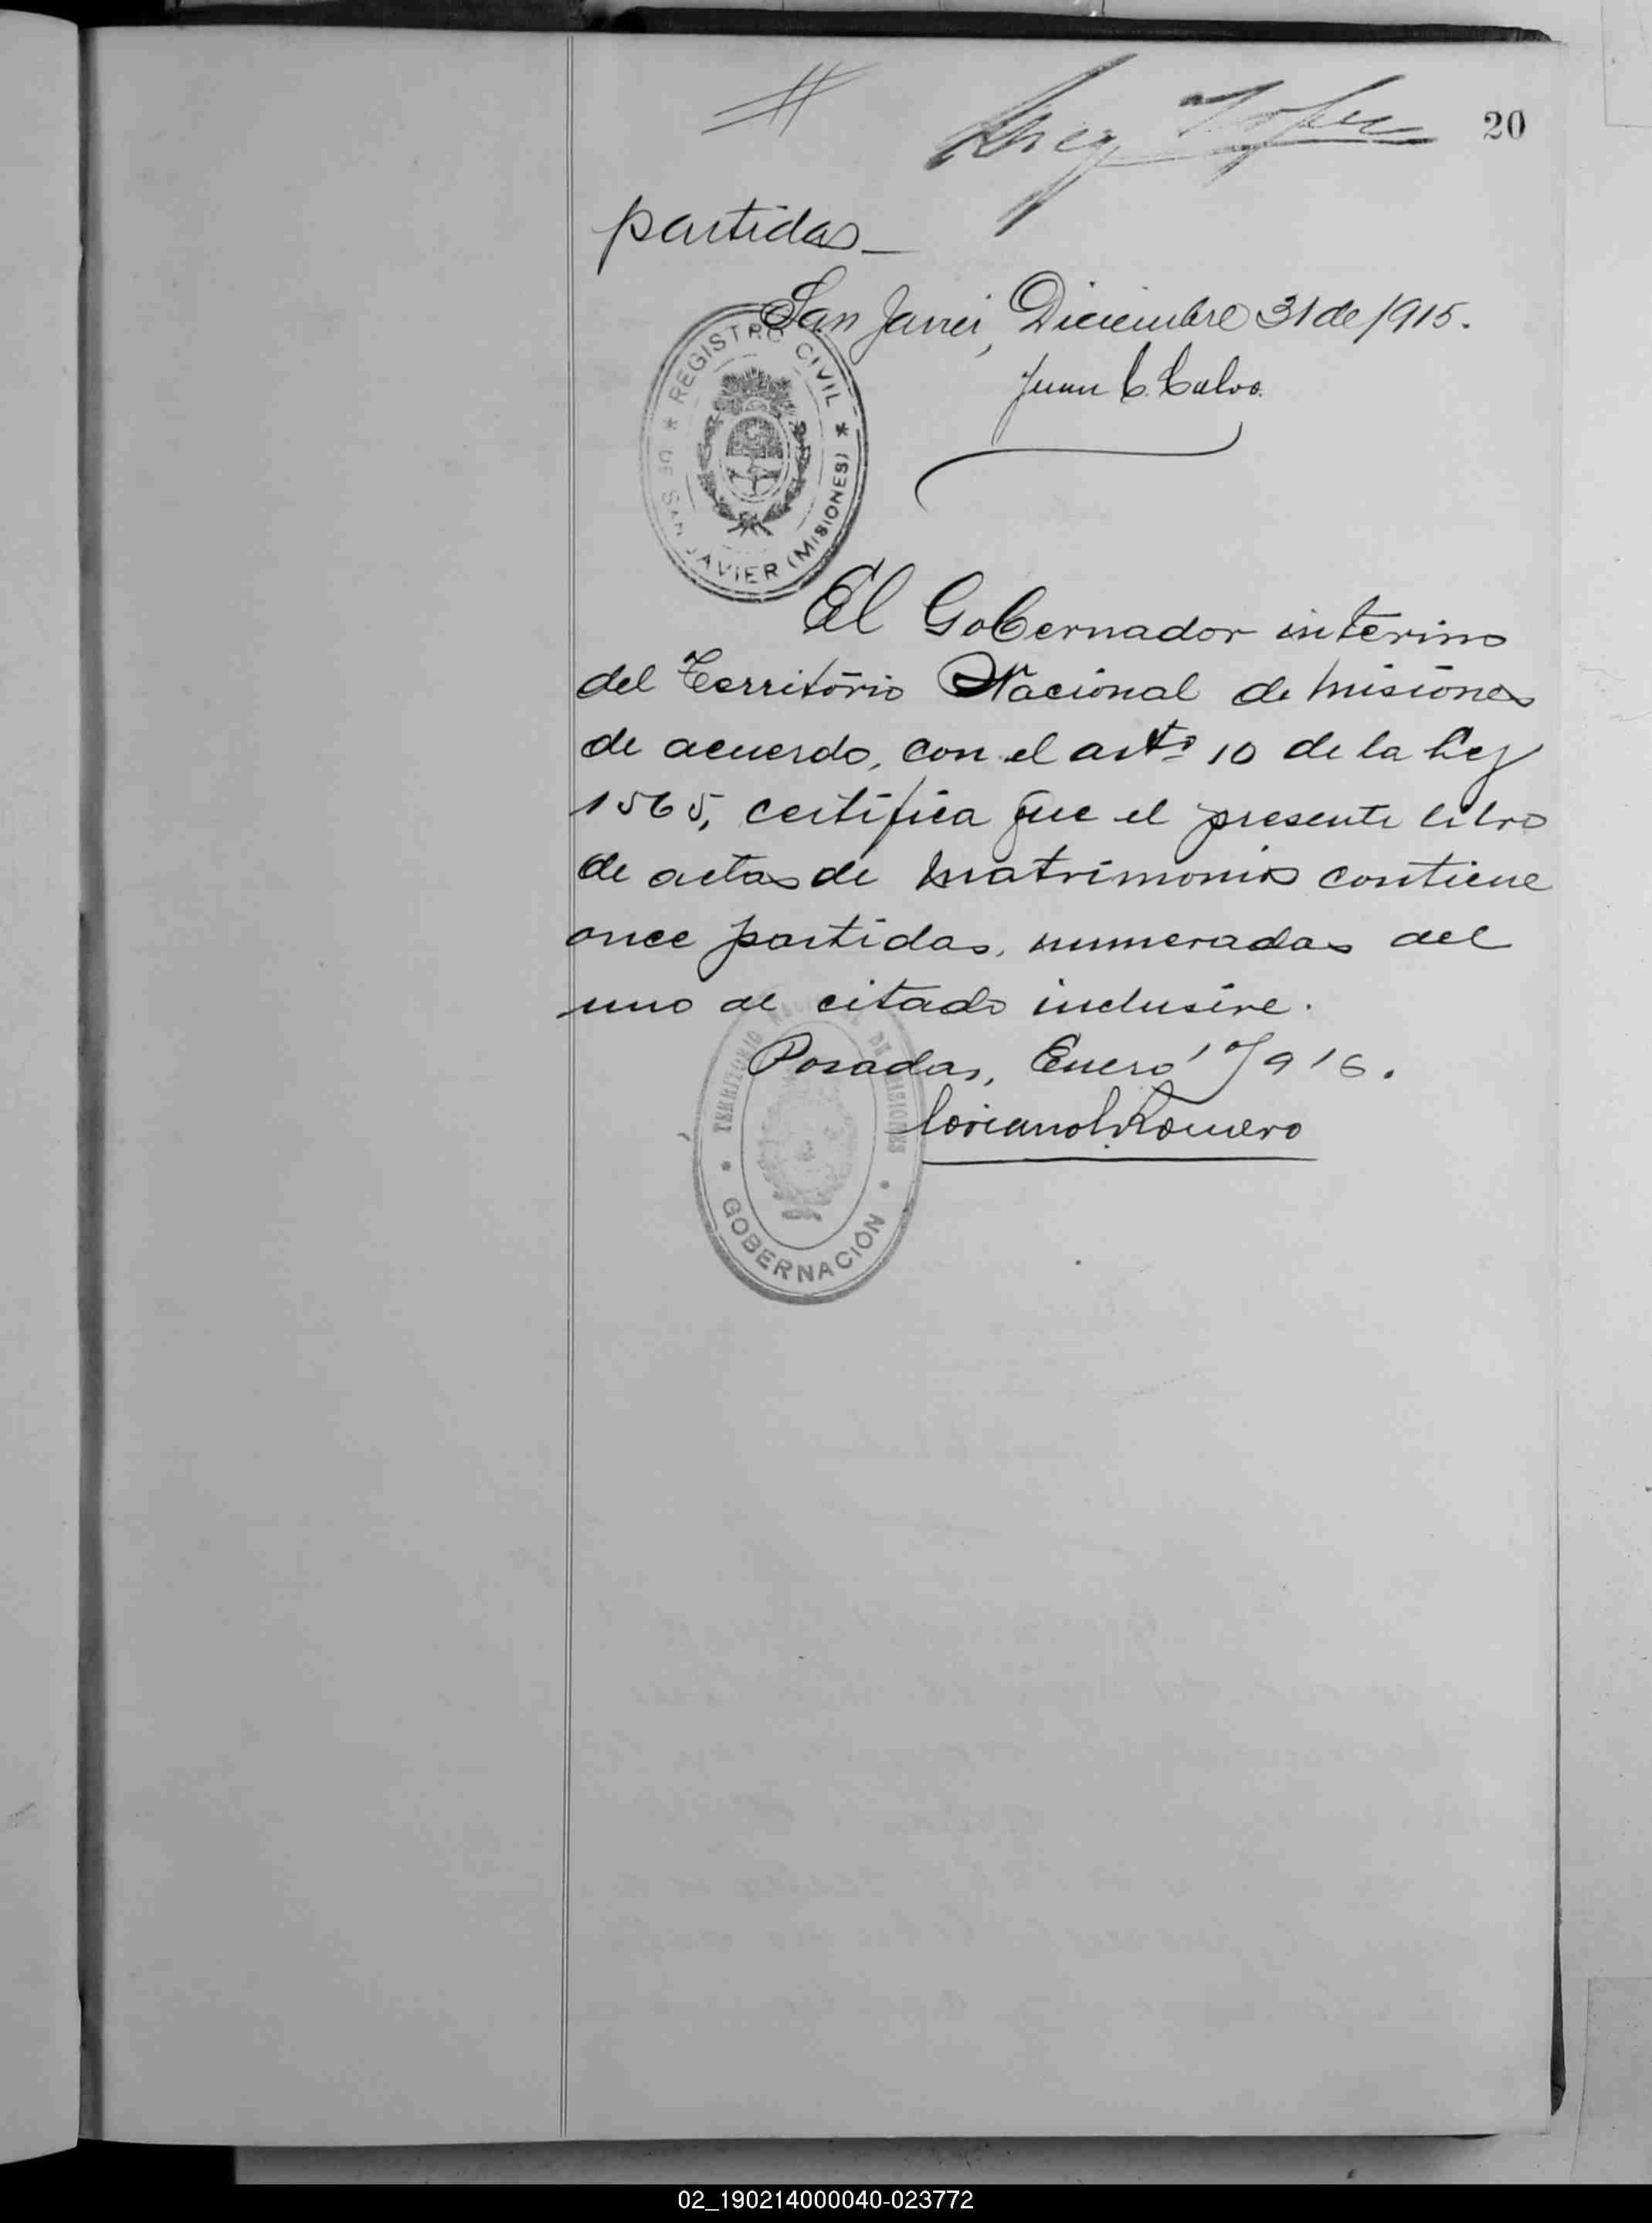 20
partidas_
San Javier, Diciembre 31 de 1915.
Juan C. Calvo.
* REGISTRO CIVIL *
DE SAN JAVIER (MISIONES)
El Gobernador interino
del Territorio Nacional de Misiones
de acuerdo, con el arto 10 de la Ley
1565, certifica que el presente libro
de actas de matrimonio contiene
once partidas, numeradas del
uno al citado inclusive.
Posadas, Enero 1º/916.
Romero
TERRITORIO NACIONAL DE MISIONES
• GOBERNACIÓN •
02_190214000040-023772